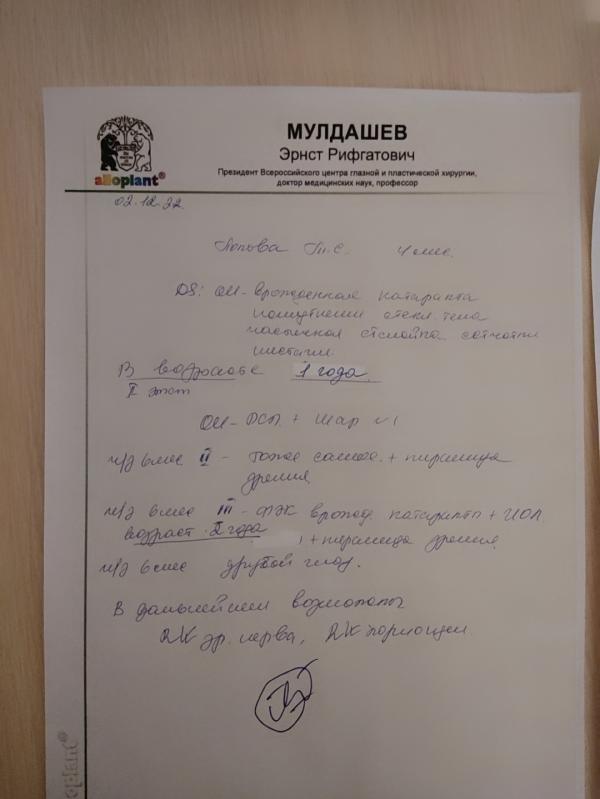 МУЛДАШЕВ
Эрнст Рифгатович
Президент Всероссийского центра глазной и пластической хирургии,
доктор медицинских наук, профессор
alloplant®
02.12.22
Попова Т.С. 4 мес.
DS: OU - врожденная катаракта
помутнения стекл. тела
частичная отслойка сетчатки
В возрасте 1 года.
I этап
OU - + шар
ч/з 6 мес II - тоже самое + пирамида
дренаж
ч/з 6 мес III - ФЭК врожд. катаракты + ИОЛ
возраст 2 года + пирамида дренаж
ч/з 6 мес другой глаз.
В дальнейшем возможны
зр. нерва,
oplant®